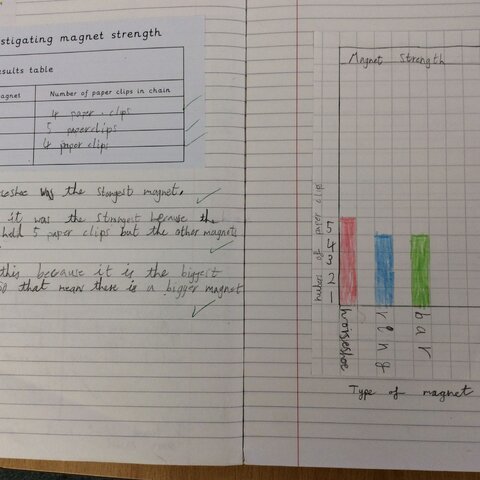 stigating magnet strength
esults table
agnet Number of paper clips in chain
4 paper clips
5 paperclips
4 paper clips
was the stongest magnet.
it was the strongest because the
held 5 paper clips but the other magnets
this because it is the biggest
so that means there is a bigger magnet
Magnet Strength
5
4
3
2
1
of paper clip
horseshoe
ring
bar
Type of magnet